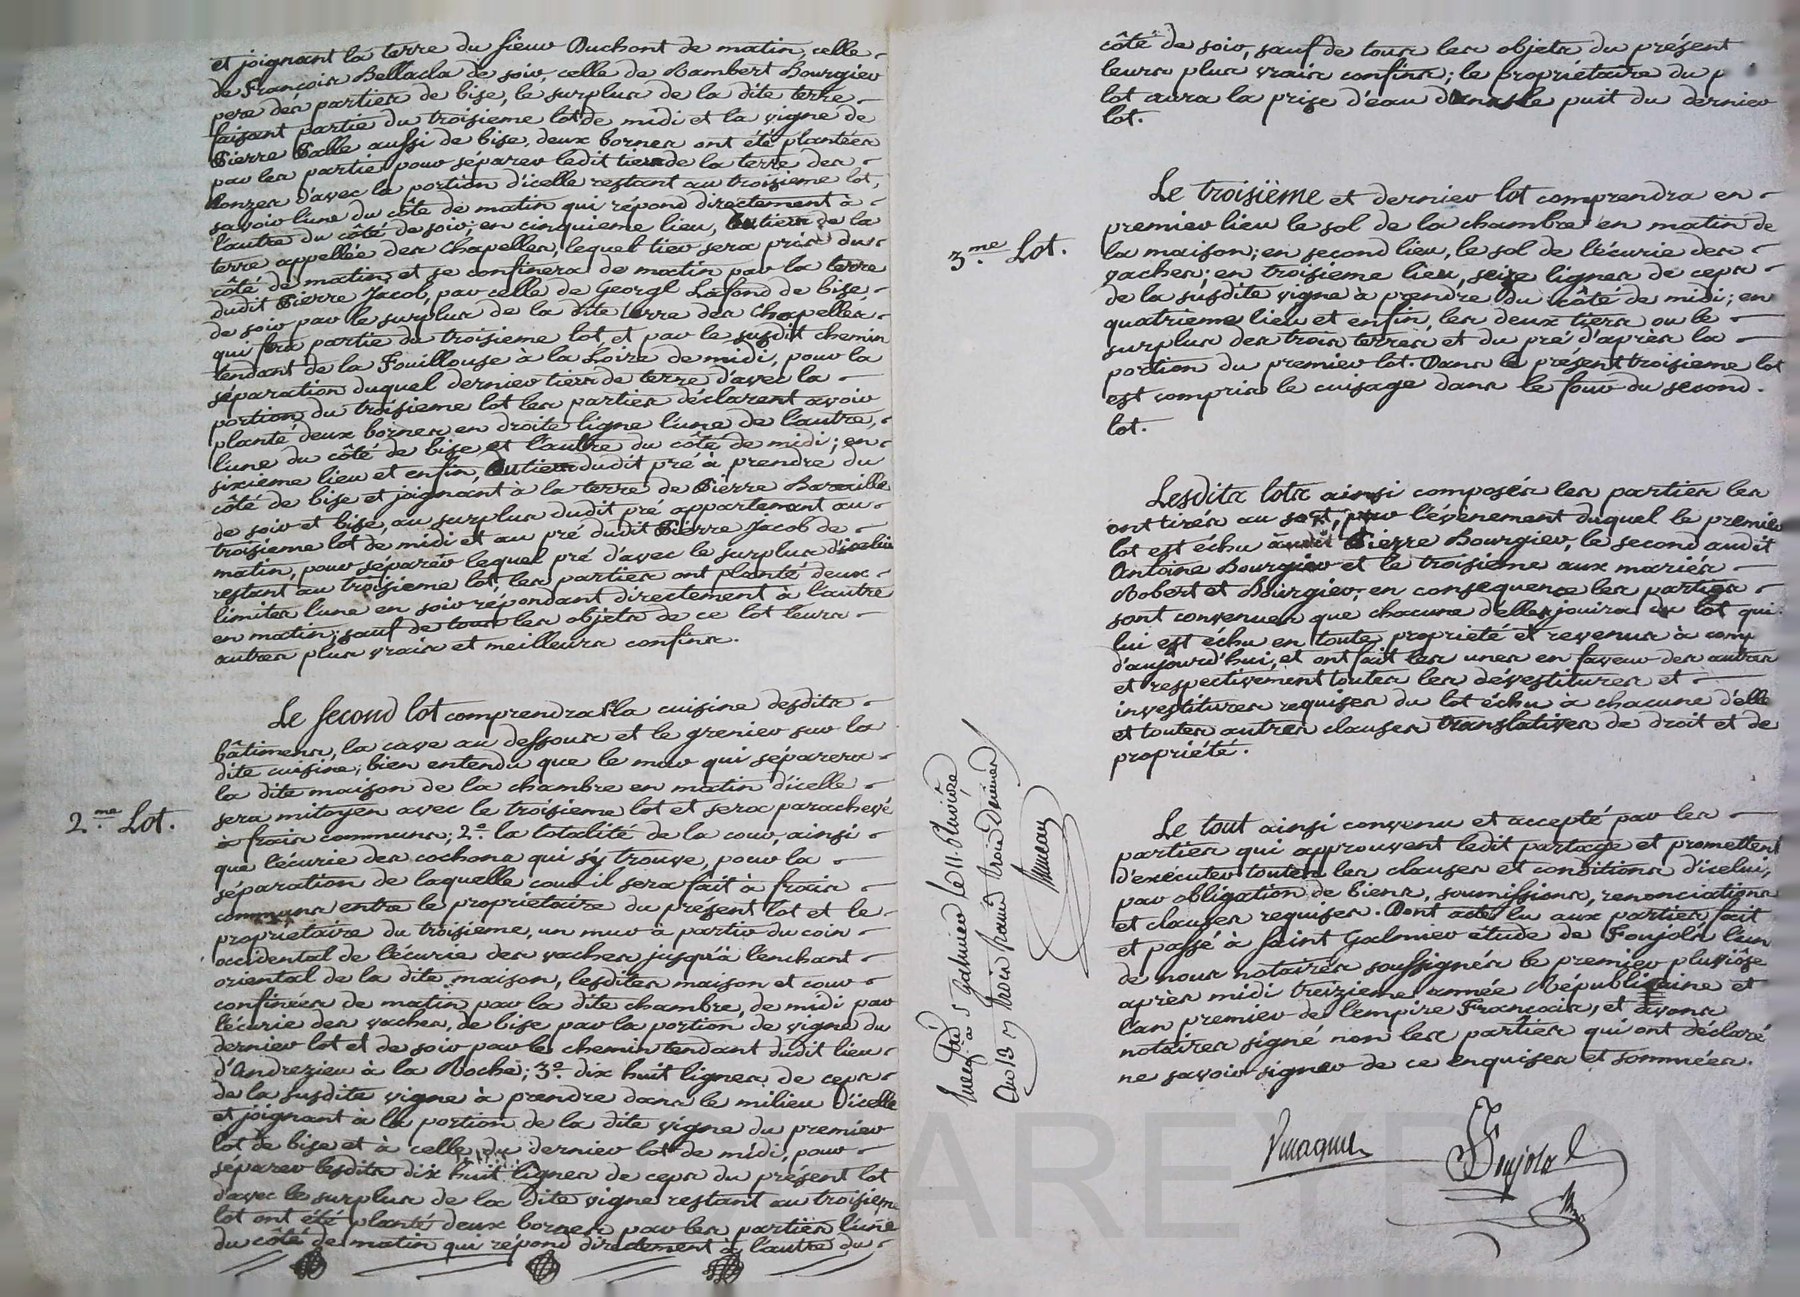 et joignant la terre du sieur Duchont de matin, celle
de François Bellacla de soir, celle de Rambert Bourgier
pere des parties de bise, le surplus de la dite terre
faisant partie du troisieme lot de midi et la vigne de
Pierre Palle aussi de bise, deux bornes ont été plantées
par les partie pour séparer ledit tiers de la terre des
honzes d'avec la portion d'icelle restant au troisieme lot,
savoir lune du côté de matin qui répond directement à
l'autre du côté de soir; en cinquieme lieu, un tiers de la
terre appellée des chapelles, lequel tier sera pris du
côté de matin, et se confinera de matin par la terre
dudit Pierre Jacob, par celle de Georgl Lafond de bise,
de soir par le surplus de la dite terre des chapelles
qui fera partie du troisieme lot, et par le susdit chemin
tendant de la Fouillouse à la Loire de midi, pour la
séparation duquel dernier tiers de terre d'avec la
portion du troisieme lot les parties déclarent avoir
planté deux bornes en droite ligne lune de l'autre,
lune du côté de bise et l'autre du côté de midi; en
sixieme lieu et enfin, un tiers dudit pré à prendre du
côté de bise et joignant à la terre de Pierre Baraille
de soir et bise, au surplus dudit pré appartenant au
troisieme lot de midi et au pré dudit Pierre Jacob de
matin, pour séparer lequel pré d'avec le surplus d'icelui
restant au troisieme lot, les parties ont planté deux
limites l'une en soir répondant directement à l'autre
en matin; sauf de tous les objets de ce lot leurs
autres plus vrais et meilleurs confins.
2.me Lot.
Le second lot comprendra la cuisine desdits
bâtimens, la cave au dessous et le grenier sur la
dite cuisine; bien entendu que le mur qui séparera
la dite maison de la chambre en matin d'icelle
sera mitoyen avec le troisieme lot et sera parachevé
à frais communs; 2.° la totalité de la cour, ainsi
que l'écurie des cochons qui s'y trouve, pour la
séparation de laquelle cour il sera fait à frais
communs entre le propriétaire du présent lot et le
propriétaire du troisieme, un mur à partir du coin
occidental de l'écurie des vaches jusqu'à l'enchant
oriental de la dite maison, lesdites maison et cour
confinées de matin par la dite chambre, de midi par
l'écurie des vaches, de bise par la portion de vigne du
dernier lot et de soir par le chemin tendant dudit lieu
d'Andrezieu à la Roche; 3.° dix huit lignes de ceps
de la susdite vigne à prendre dans le milieu d'icelle
et joignant à la portion de la dite vigne du premier
lot de bise et à celle du dernier lot de midi, pour
séparer lesdits dix huit lignes de ceps du présent lot
d'avec le surplus de la dite vigne restant au troisieme
lot ont été planté deux bornes par les parties l'une
du côté de matin qui répond directement à l'autre du
côté de soir, sauf de tous les objets du présent
leurs plus vrais confins; le propriétaire du p
lot aura la prise d'eau dans le puit du dernier
lot.
3.me Lot.
Le troisième et dernier lot comprendra en
premier lieu le sol de la chambre en matin de
la maison; en second lieu, le sol de l'écurie des
vaches; en troisieme lieu, seize lignes de ceps
de la susdite vigne à prendre du côté de midi; en
quatrieme lieu et enfin, les deux tiers ou le
surplus des trois terres et du pré d'après la
portion du premier lot. Dans le présent troisieme lot
est compris le cuisage dans le four du second
lot.
Lesdits lots ainsi composés les parties les
ont tirés au sort, par l'évènement duquel le premier
lot est échu audit Pierre Bourgier, le second audit
Antoine Bourgier et le troisieme aux mariés
Robert et Bourgier, en consequence les parties
sont convenues que chacune d'elles jouira du lot qui
lui est echu en toute propriété et revenus à comp
d'aujourd'hui, et ont fait les unes en faveur des autres
et respectivement toutes les dévestitures et
investitures requises du lot échu à chacune d'elle
et toutes autres clauses translatives de droit et de
propriété.
Le tout ainsi convenu et accepté par les
parties qui approuvent ledit partage et promettent
d'exécuter toutes les clauses et conditions d'icelui,
par obligation de biens, soumissions, renonciations
et clauses requises. Dont acte lu aux parties fait
et passé à saint Galmier étude de Foujols l'un
de nous notaires soussignés le premier pluviôse
après midi treizieme année Républicaine et
l'an premier de l'empire Français, et avons
notaires signé non les parties qui ont déclaré
ne savoir signer de ce enquises et sommées.
Foujols
à S. Galmier le 11 Pluviôse
an 13
AREYRON